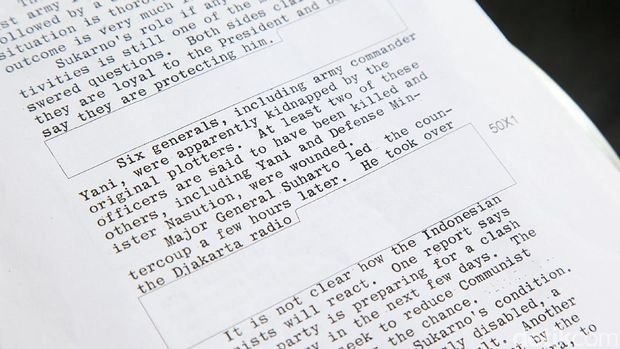 st army
followed by a
situation is
outcome is very much in
Sukarno's role if any
tivities is still one of the
swered questions. Both sides
they are loyal to the President and
say they are protecting him.
Six generals, including army commander
Yani, were apparently kidnapped by the
original plotters. At least two of these
officers are said to have been killed and
others, including Yani and Defense Min-
ister Nasution, were wounded.
Major General Suharto led the coun-
tercoup a few hours later. He took over
the Djakarta radio
50X1
It is not clear how the Indonesian
ists will react. One report says
party is preparing for a clash
in the next few days. The
seek to reduce Communist
the chance.
Sukarno's condition.
disabled, a
Another
to